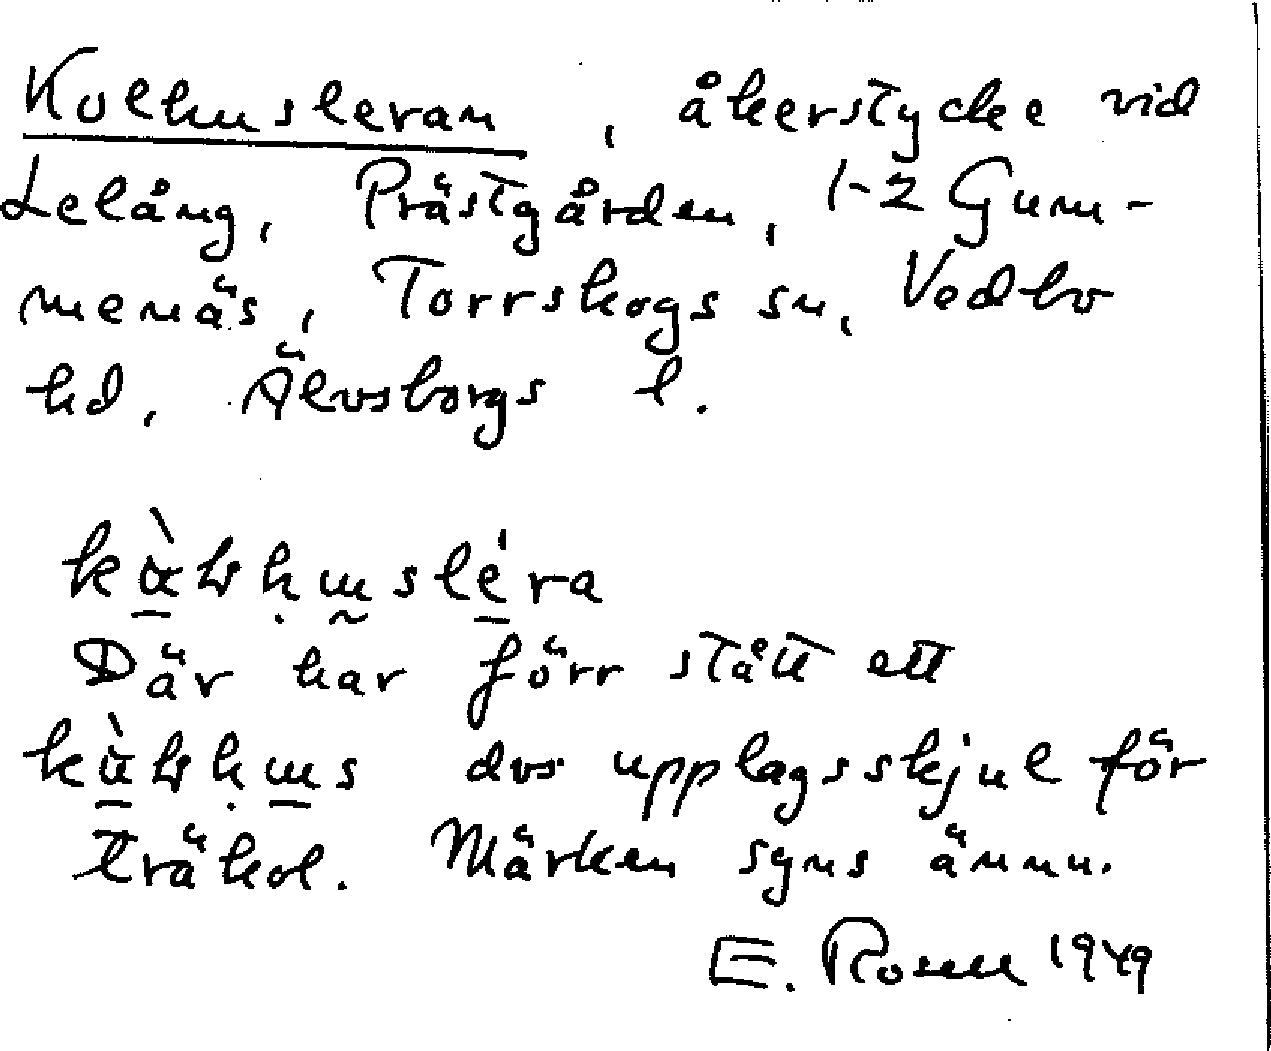 Kolhusleran, åkerstycke vid
Lelång, Prästgården, 1-2 Gum-
menäs, Torrskogs sn, Vedbo
hd, Älvsborgs l.
Där har förr stått ett
dvs upplagsskjul för
träkol. Märken syns ännu.
E. Rosell 1949